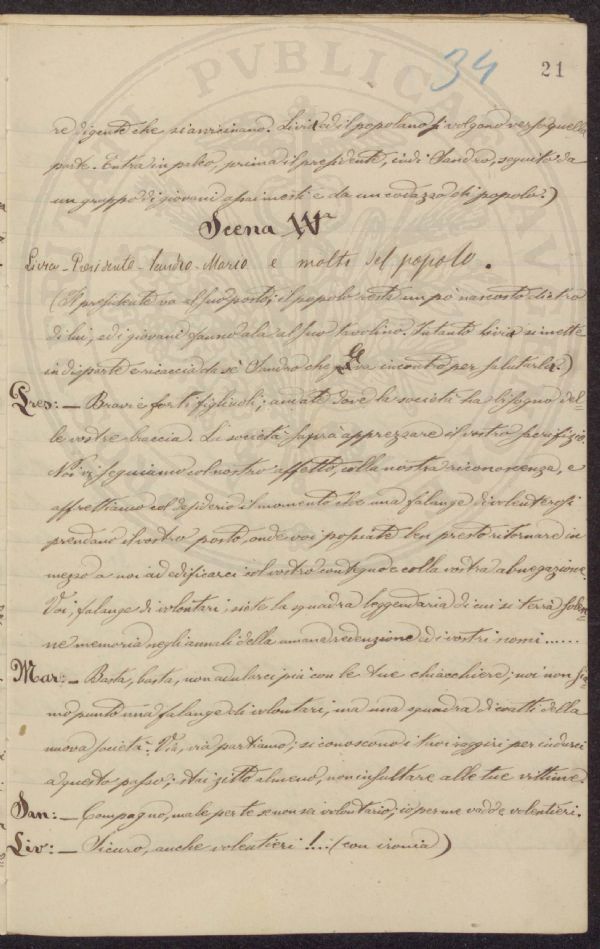 34
21
re di gente che si avvicinano. Livia ed il popolano si volgono verso quella
parte. Entra in palco, prima il presidente, indi Sandro, seguito da
un gruppo di giovani assai mesti e da un codazzo di popolo.)
Scena
Livia - Presidente - Sandro - Mario e molti del popolo.
(Il presidente va al suo posto; il popolo resta un pò nascosto dietro
di lui, ed i giovani fanno ala al suo tavolino. Intanto Livia si mette
in disparte e ricaccia da sè Sandro che le va incontro per salutarla.)
Pres: - Bravi e forti figliuoli; andate dove la società ha bisogno del-
le vostre braccia. La società saprà apprezzare il vostro sacrifizio.
Noi vi seguiamo col nostro affetto, colla nostra riconoscenza, e
affrettiamo col desiderio il momento che una falange di volenterosi
prendano il vostro posto, onde voi possiate ben presto ritornare in
mezzo a noi ad edificarci col vostro contegno e colla vostra abnegazione.
Voi, falange di volontari, siete la squadra leggendaria di cui si terrà solen-
ne memoria negli annali della umana redenzione ed i vostri nomi......
Mar: - Basta, basta, non adularci più con le tue chiacchiere; noi non sia-
mo punto una falange di volontari, ma una squadra di coatti della
nuova società. Via, via partiamo; si conoscono i tuoi raggiri per indurci
a questo passo; stai zitto almeno, non insultare alle tue vittime.
San: - Compagno, male per te se non sei volontario; io per me vado e volentieri.
Liv: - Sicuro, anche volentieri!... (con ironia)
PVBLICA